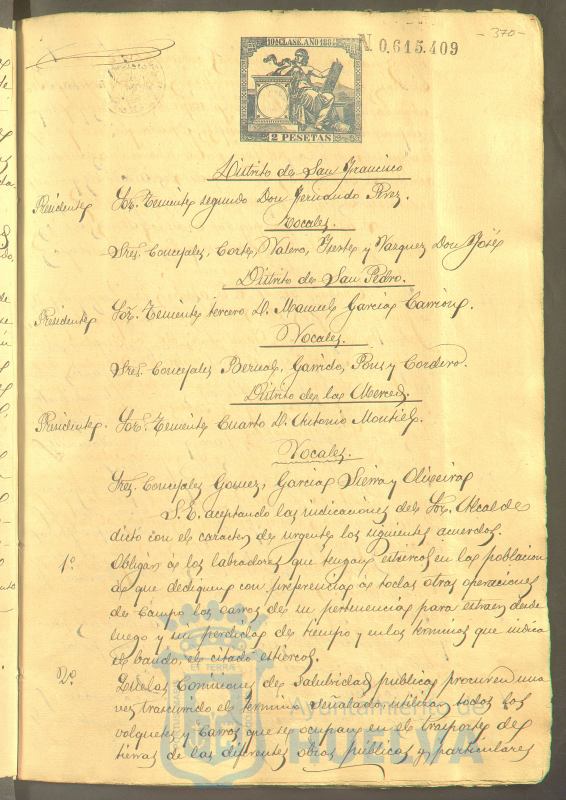 -370-
10ª CLASE. AÑO 188
N 0.615.409
2 PESETAS
Distrito de San Francisco
Presidente Sor. Teniente segundo Don Fernando Perez.
Vocales.
Sres. Concejales, Cortes, Valero, Fuertes y Vazquez Don José
Distrito de San Pedro.
Presidente Sor. Teniente tercero D. Manuel Garcia Carrion.
Vocales.
Sres. Concejales Bernal, Garrido, Pons y Cordero.
Distrito de la Merced.
Presidente. Sor. Teniente Cuarto D. Antonio Montiel.
Vocales.
Sres. Concejales Gomez, Garcia, Sierra y Oliveira
S.E. aceptando las indicaciones del Sor. Alcalde
dictó con el caracter de urgente los siguientes acuerdos.
1º. Obligar á los labradores que tengan estiercol en la poblacion
á que dediquen con preferencia á todas otras operaciones
de campo los carros de su pertenencia para estraer desde
luego y sin perdida de tiempo y en los terminos que indica
el bando, el citado estiercol.
2º. Que las Comisiones de Salubridad publica procuren una
vez trascurrido el termino señalado utilizar todos los
volquetes y carros que se ocupan en el trasporte de
tierras de las diferentes obras publicas y particulares
Ayuntamiento
HUELVA